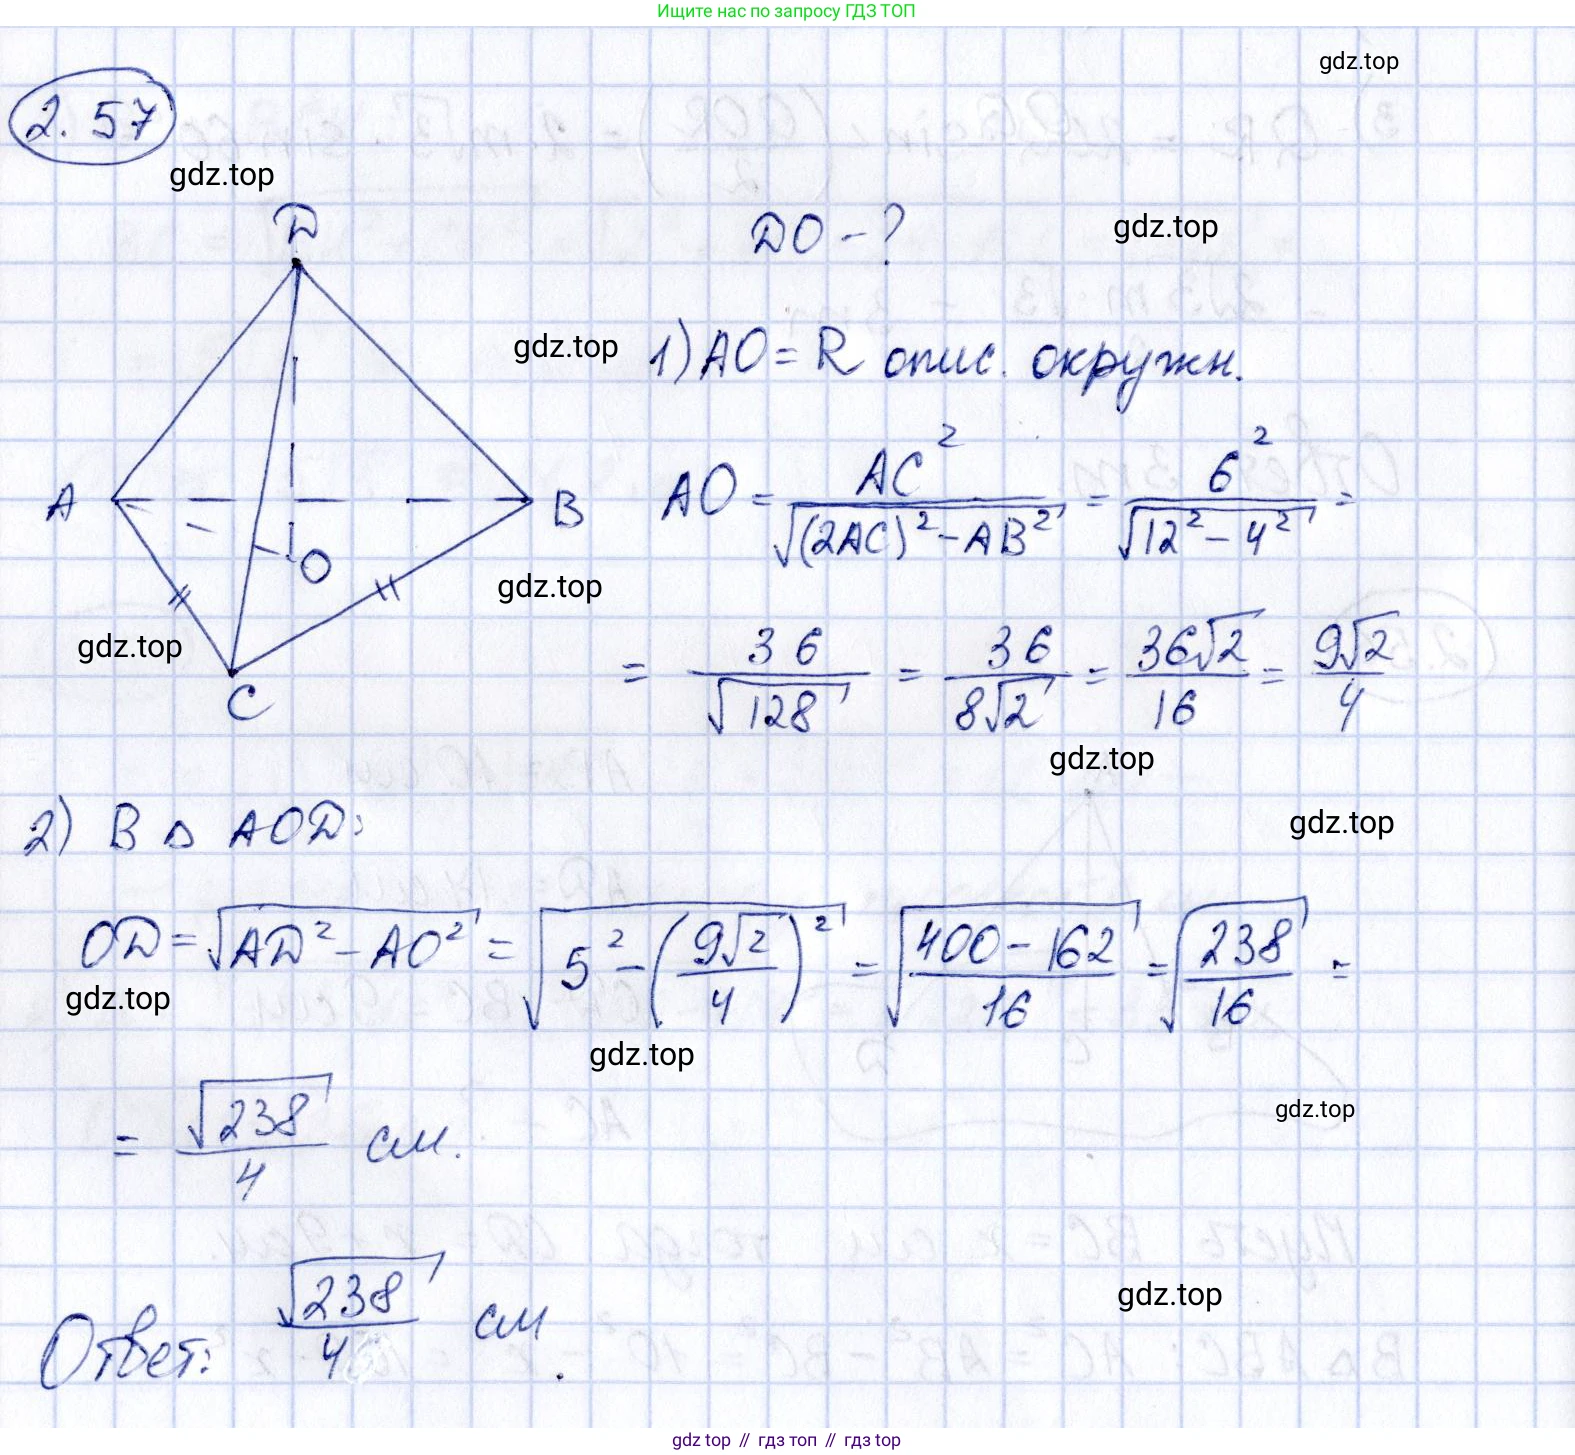 Ищите нас по запросу ГДЗ ТОП
gdz.top
2.57
gdz.top
D
DO - ?
gdz.top
gdz.top
1) AO = R опис. окружн.
A
B
O
C
AO = AC² / √((2AC)² - AB²) = 6² / √(12² - 4²) =
gdz.top
gdz.top
= 36 / √128 = 36 / 8√2 = 36√2 / 16 = 9√2 / 4
gdz.top
gdz.top
2) В △ AOD:
OD = √(AD² - AO²) = √(5² - (9√2 / 4)²) = √((400 - 162) / 16) = √(238 / 16) =
gdz.top
gdz.top
gdz.top
= √238 / 4 см.
gdz.top
Ответ: √238 / 4 см.
gdz.top // гдз топ // гдз top